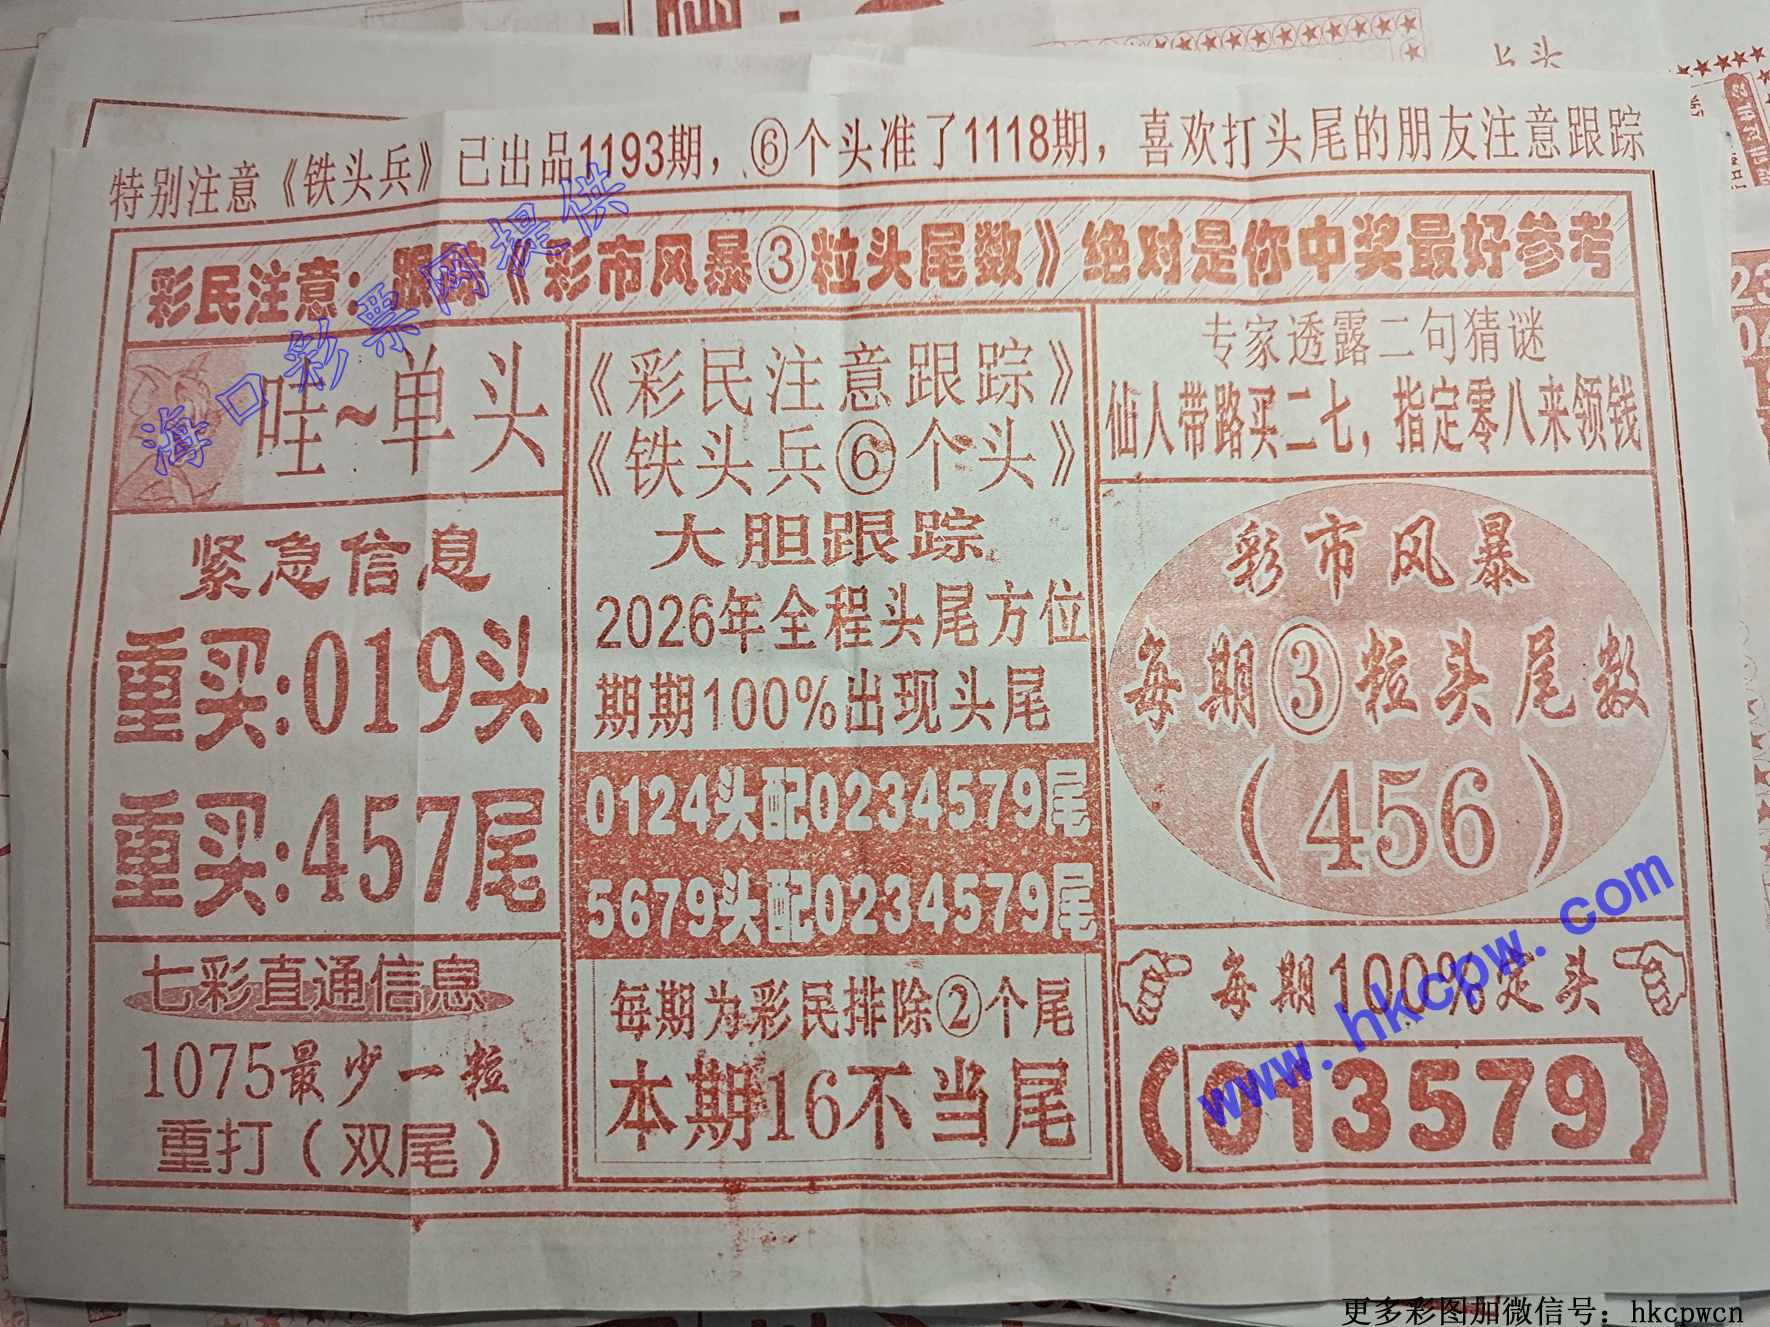 特别注意《铁头兵》已出品1193期，⑥个头准了1118期，喜欢打头尾的朋友注意跟踪
彩民注意：跟踪《彩市风暴③粒头尾数》绝对是你中奖最好参考
哇~单头
紧急信息
重买:019头
重买:457尾
七彩直通信息
1075最少一粒
重打（双尾）
《彩民注意跟踪》
《铁头兵⑥个头》
大胆跟踪
2026年全程头尾方位
期期100%出现头尾
0124头配0234579尾
5679头配0234579尾
每期为彩民排除②个尾
本期16不当尾
专家透露二句猜谜
仙人带路买二七，指定零八来领钱
彩市风暴
每期③粒头尾数
（456）
每期100%定头
（013579）
海口彩票网提供
www.hkcpw.com
更多彩图加微信号：hkcpwcn